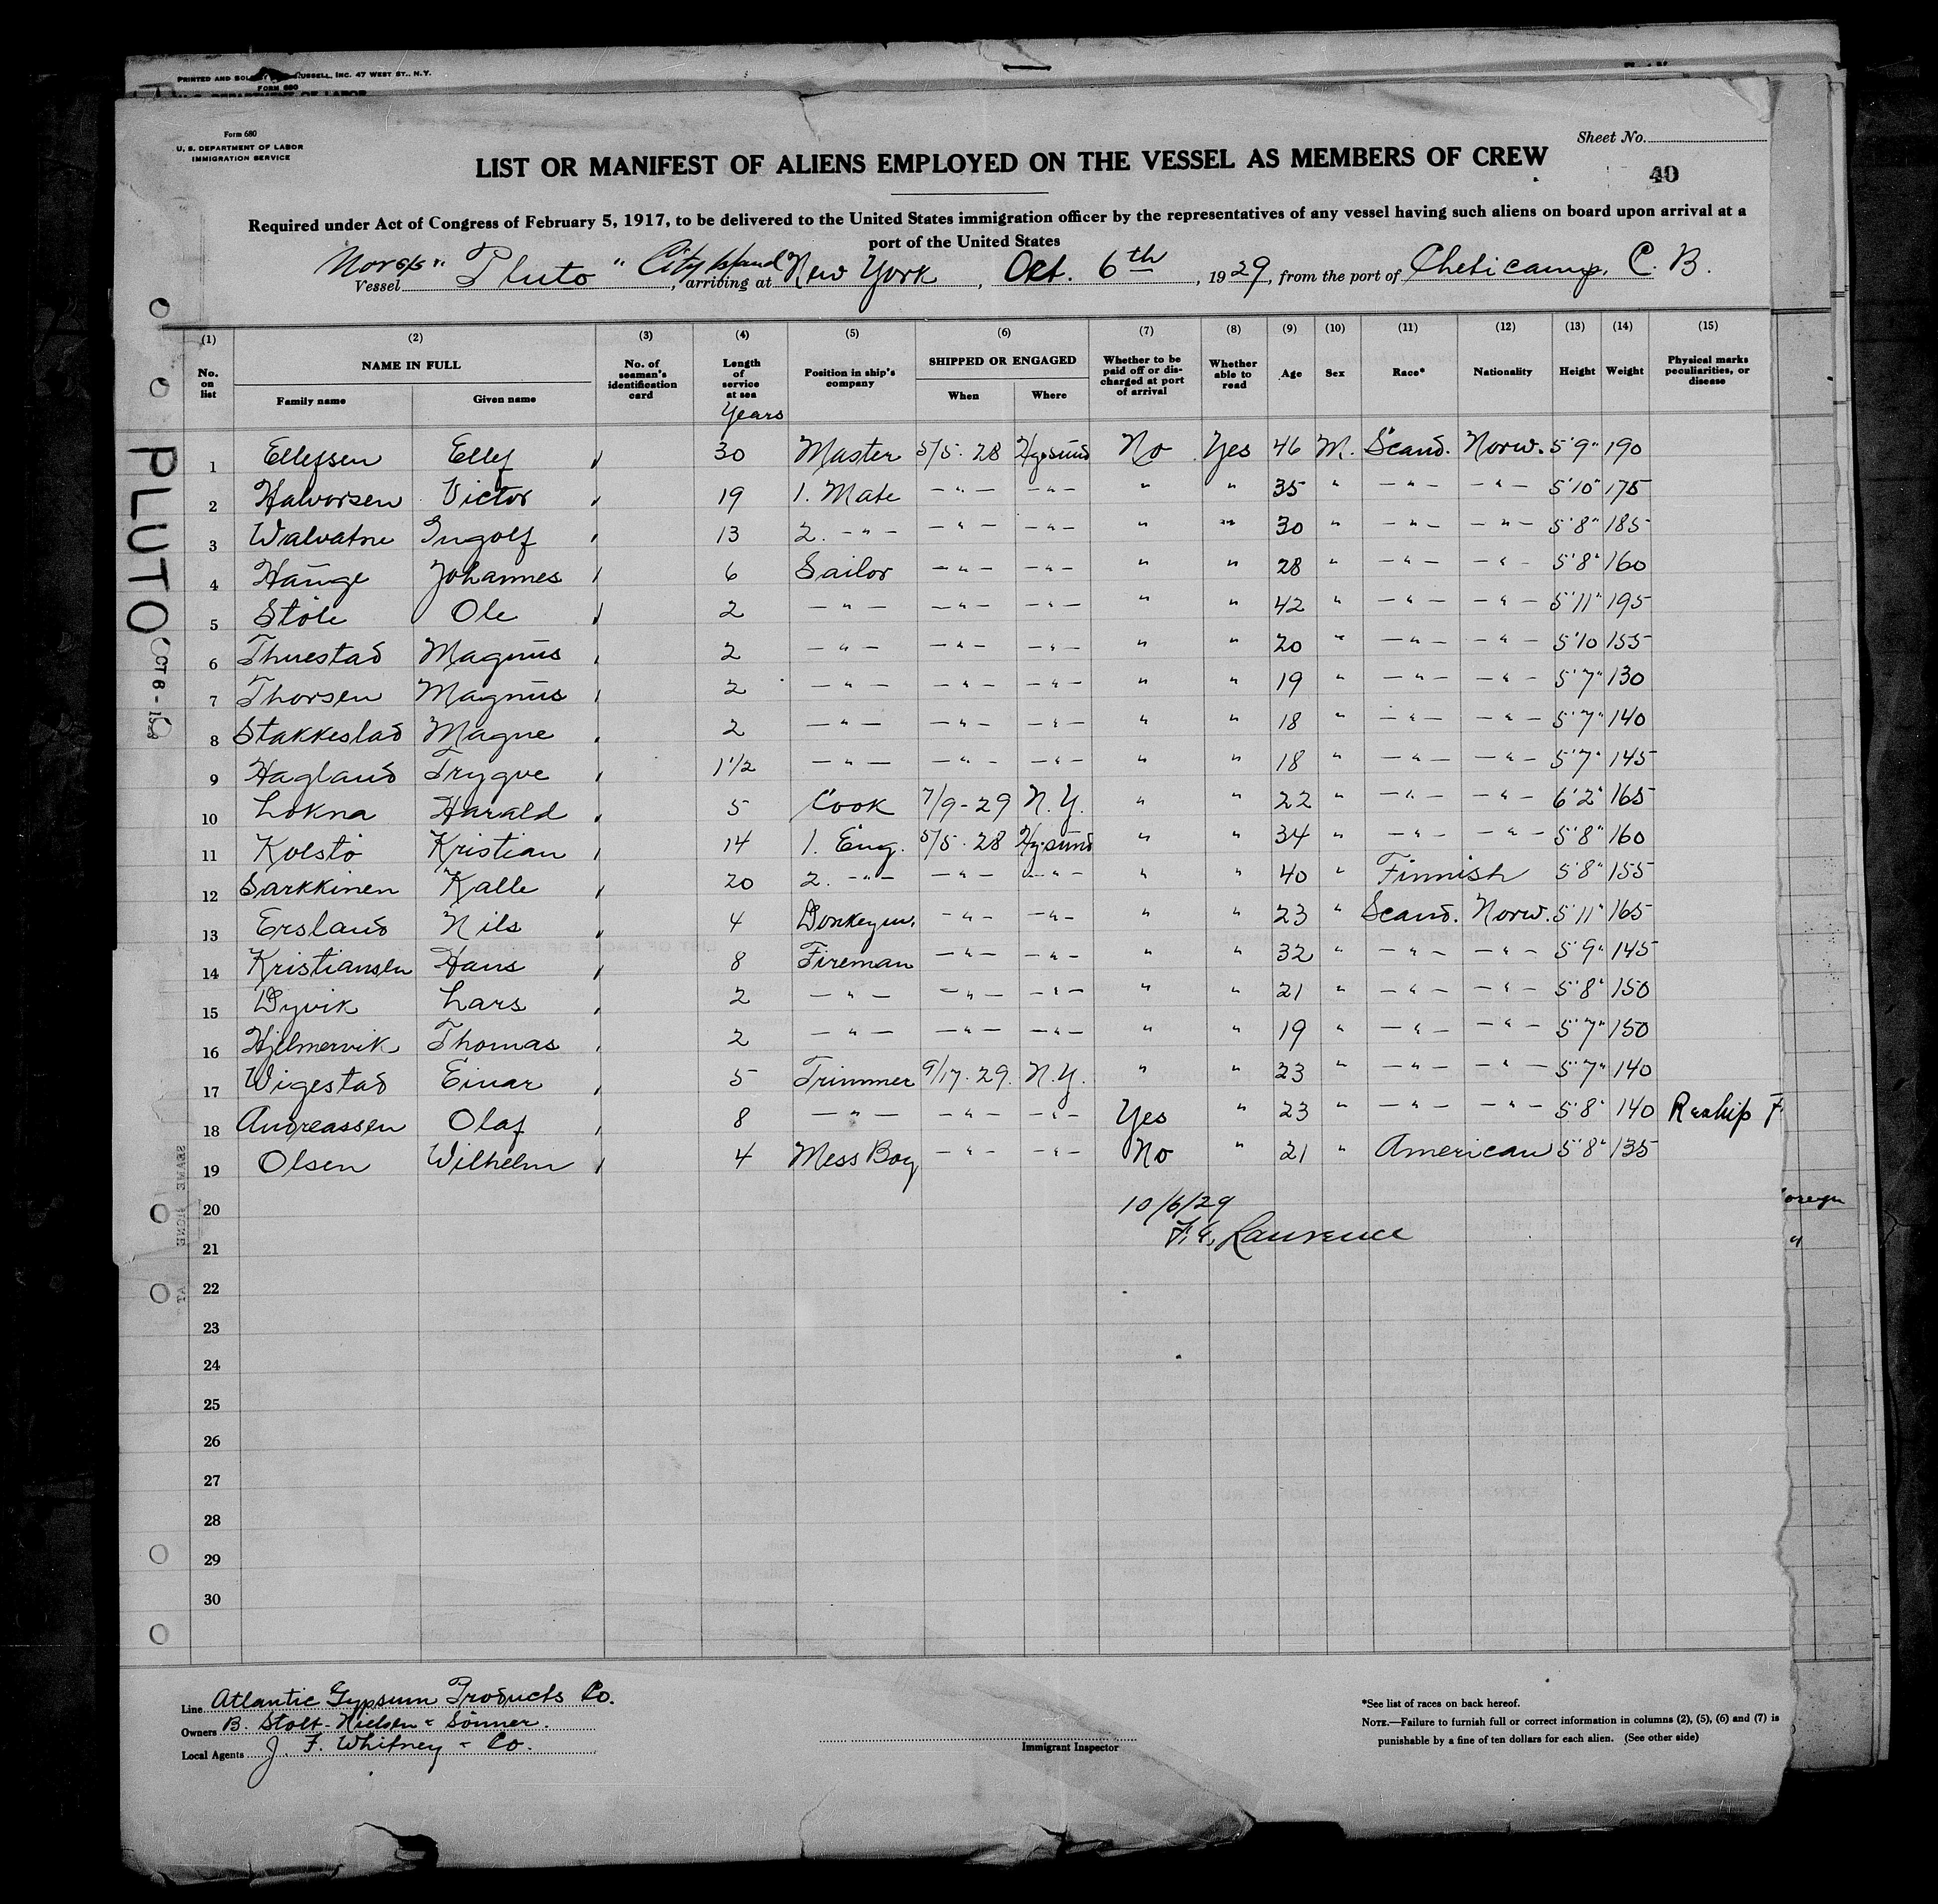 PRINTED AND SOLD BY RUSSELL, INC. 47 WEST ST., N.Y.
FORM 680
U. S. DEPARTMENT OF LABOR
Form 680
U. S. DEPARTMENT OF LABOR
IMMIGRATION SERVICE
Sheet No.
40
LIST OR MANIFEST OF ALIENS EMPLOYED ON THE VESSEL AS MEMBERS OF CREW
Required under Act of Congress of February 5, 1917, to be delivered to the United States immigration officer by the representatives of any vessel having such aliens on board upon arrival at a
port of the United States
Vessel Nor s/s "Pluto", arriving at City Island New York, Oct. 6th, 1929, from the port of Cheticamp, C. B.
(1) (2) (3) (4) (5) (6) (7) (8) (9) (10) (11) (12) (13) (14) (15)
No. on list NAME IN FULL Family name Given name No. of seaman's identification card Length of service at sea Years Position in ship's company SHIPPED OR ENGAGED When Where Whether to be paid off or discharged at port of arrival Whether able to read Age Sex Race* Nationality Height Weight Physical marks peculiarities, or disease
1 Ellefsen Ellef 30 Master 5/5-28 Hgsund No Yes 46 M. Scand. Norw. 5'9" 190
2 Halvorsen Victor 19 1. Mate -"- -"- " " 35 " -"- -"- 5'10" 175
3 Walvatne Ingolf 13 2. -"- -"- -"- " " 30 " -"- -"- 5'8" 185
4 Hauge Johannes 6 Sailor -"- -"- " " 28 " -"- -"- 5'8" 160
5 Stöle Ole 2 -"- -"- -"- " " 42 " -"- -"- 5'11" 195
6 Thuestad Magnus 2 -"- -"- -"- " " 20 " -"- -"- 5'10 155
7 Thorsen Magnus 2 -"- -"- -"- " " 19 " -"- -"- 5'7" 130
8 Stakkestad Magne 2 -"- -"- -"- " " 18 " -"- -"- 5'7" 140
9 Hagland Trygve 1 1/2 -"- -"- -"- " " 18 " -"- -"- 5'7" 145
10 Lokna Harald 5 Cook 7/9-29 N.Y. " " 22 " -"- -"- 6'2" 165
11 Kolstö Kristian 14 1. Eng. 5/5-28 Hgsund " " 34 " -"- -"- 5'8" 160
12 Sarkkinen Kalle 20 2. -"- -"- -"- " " 40 " Finnish 5'8" 155
13 Ersland Nils 4 Donkeym. -"- -"- " " 23 " Scand. Norw. 5'11" 165
14 Kristiansen Hans 8 Fireman -"- -"- " " 32 " -"- -"- 5'9" 145
15 Dyvik Lars 2 -"- -"- -"- " " 21 " -"- -"- 5'8" 150
16 Hjelmervik Thomas 2 -"- -"- -"- " " 19 " -"- -"- 5'7" 150
17 Wigestad Einar 5 Trimmer 9/17-29. N.Y. " " 23 " -"- -"- 5'7" 140
18 Andreassen Olaf 8 -"- -"- -"- Yes " 23 " -"- -"- 5'8" 140 Reship F
19 Olsen Wilhelm 4 Mess Boy -"- -"- No " 21 " American 5'8" 135
20 10/6/29
21 F. E. Laurence
22
23
24
25
26
27
28
29
30
oreign
"
PLUTO OCT 6 - 1929
Line Atlantic Gypsum Products Co.
Owners B. Stolt-Nielsen & Sönner.
Local Agents J. F. Whitney & Co.
Immigrant Inspector
*See list of races on back hereof.
NOTE.—Failure to furnish full or correct information in columns (2), (5), (6) and (7) is
punishable by a fine of ten dollars for each alien. (See other side)